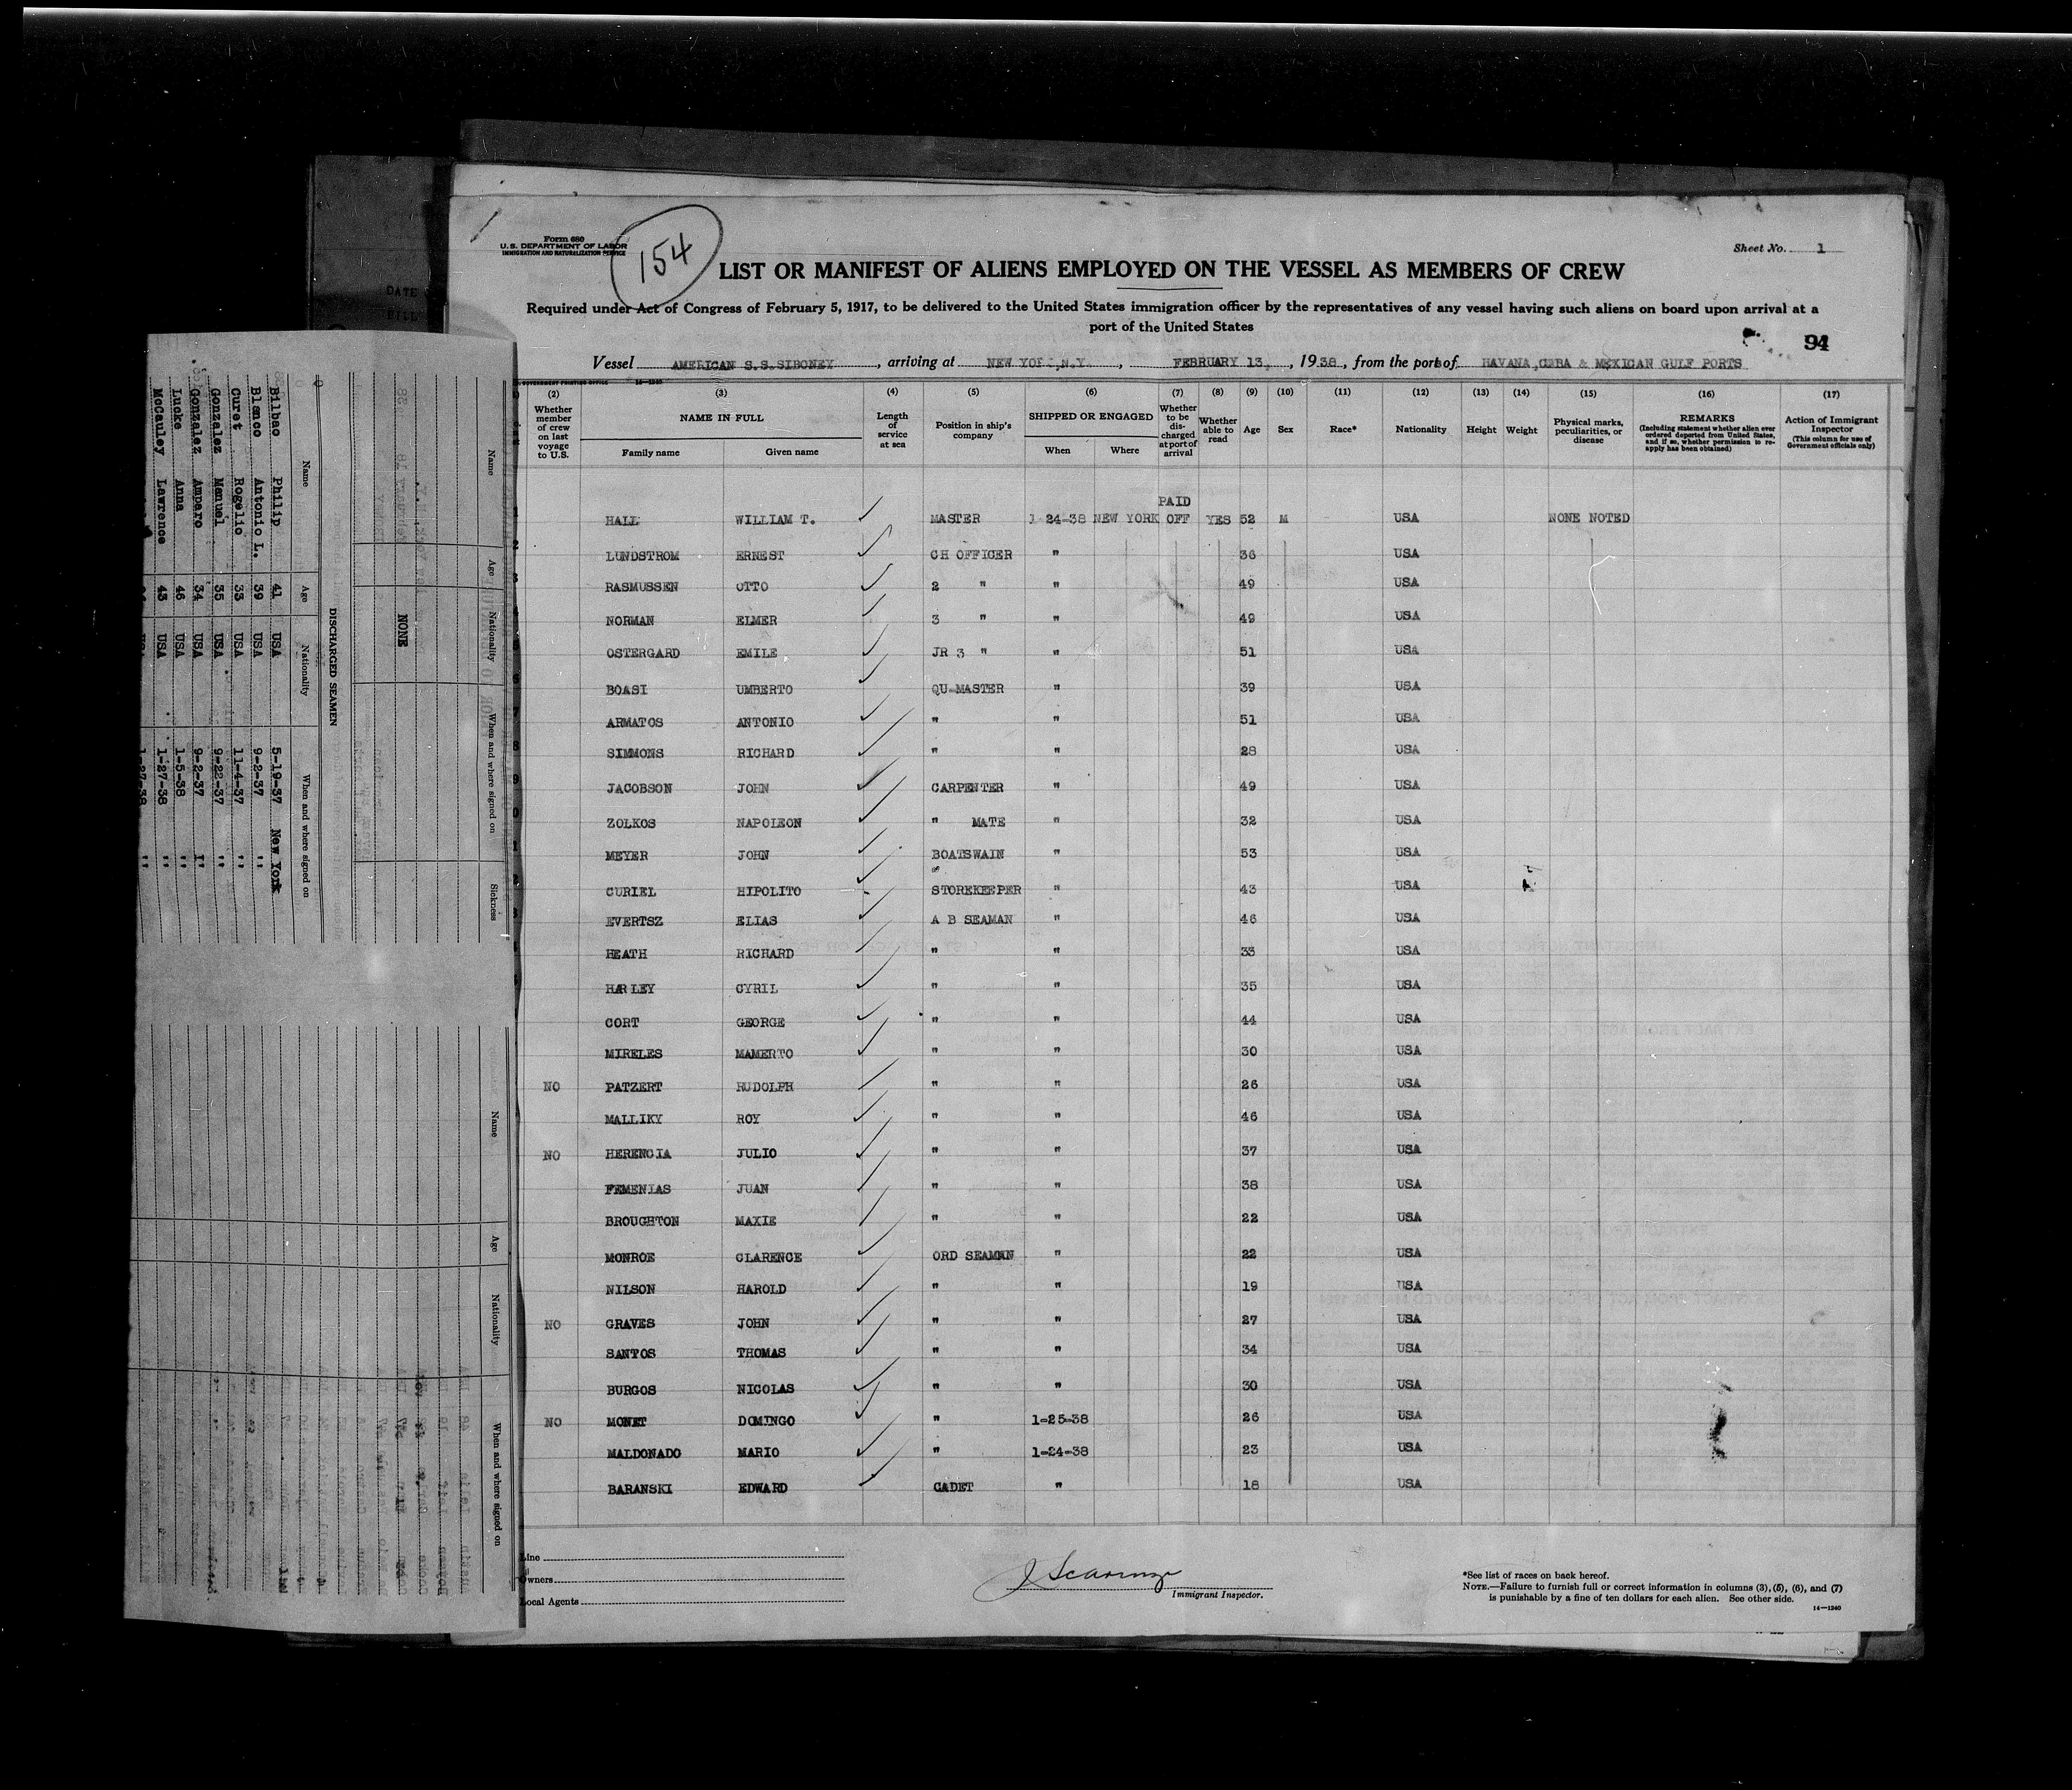 Form 680
U.S. DEPARTMENT OF LABOR
IMMIGRATION AND NATURALIZATION SERVICE
154
Sheet No. 1
LIST OR MANIFEST OF ALIENS EMPLOYED ON THE VESSEL AS MEMBERS OF CREW
Required under Act of Congress of February 5, 1917, to be delivered to the United States immigration officer by the representatives of any vessel having such aliens on board upon arrival at a
port of the United States
94
Vessel AMERICAN S.S. SIBONEY, arriving at NEW YORK, N.Y., FEBRUARY 13, 1938, from the ports of HAVANA, CUBA & MEXICAN GULF PORTS
(2) (3) (4) (5) (6) (7) (8) (9) (10) (11) (12) (13) (14) (15) (16) (17)
Whether member of crew on last voyage to U.S. NAME IN FULL Family name Given name Length of service at sea Position in ship's company SHIPPED OR ENGAGED When Where Whether to be discharged at port of arrival Whether able to read Age Sex Race* Nationality Height Weight Physical marks, peculiarities, or disease REMARKS (Including statement whether alien ever ordered deported from United States, and if so, whether permission to reapply has been obtained) Action of Immigrant Inspector (This column for use of Government officials only)
PAID
HALL WILLIAM T. MASTER 1-24-38 NEW YORK OFF YES 52 M USA NONE NOTED
LUNDSTROM ERNEST CH OFFICER " 36 USA
RASMUSSEN OTTO 2 " " 49 USA
NORMAN ELMER 3 " " 49 USA
OSTERGARD EMILE JR 3 " " 51 USA
BOASI UMBERTO QU-MASTER " 39 USA
ARMATOS ANTONIO " " 51 USA
SIMMONS RICHARD " " 28 USA
JACOBSON JOHN CARPENTER " 49 USA
ZOLKOS NAPOLEON " MATE " 32 USA
MEYER JOHN BOATSWAIN " 53 USA
CURIEL HIPOLITO STOREKEEPER " 43 USA
EVERTSZ ELIAS A B SEAMAN " 46 USA
HEATH RICHARD " " 33 USA
HARLEY CYRIL " " 35 USA
CORT GEORGE " " 44 USA
MIRELES MAMERTO " " 30 USA
NO PATZERT RUDOLPH " " 26 USA
MALLIKY ROY " " 46 USA
NO HERENCIA JULIO " " 37 USA
FEMENIAS JUAN " " 38 USA
BROUGHTON MAXIE " " 22 USA
MONROE CLARENCE ORD SEAMAN " 22 USA
NILSON HAROLD " " 19 USA
NO GRAVES JOHN " " 27 USA
SANTOS THOMAS " " 34 USA
BURGOS NICOLAS " " 30 USA
NO MONET DOMINGO " 1-25-38 26 USA
MALDONADO MARIO " 1-24-38 23 USA
BARANSKI EDWARD CADET " 18 USA
Line
Owners
Local Agents
Immigrant Inspector.
*See list of races on back hereof.
NOTE.—Failure to furnish full or correct information in columns (3), (5), (6), and (7)
is punishable by a fine of ten dollars for each alien. See other side.
14—1240
Name Age Nationality When and where signed on Sickness
NONE
DISCHARGED SEAMEN
Name Age Nationality When and where signed on
Bilbao Philip 41 USA 5-19-37 New York
Blanco Antonio L. 39 USA 9-2-37 "
Curet Rogelio 33 USA 11-4-37 "
Gonzalez Manuel 35 USA 9-22-37 "
Gonzalez Amparo 34 USA 9-2-37 "
Lucke Anna 46 USA 1-5-38 "
McCauley Lawrence 43 USA 1-27-38 "
Name Age Nationality When and where signed on